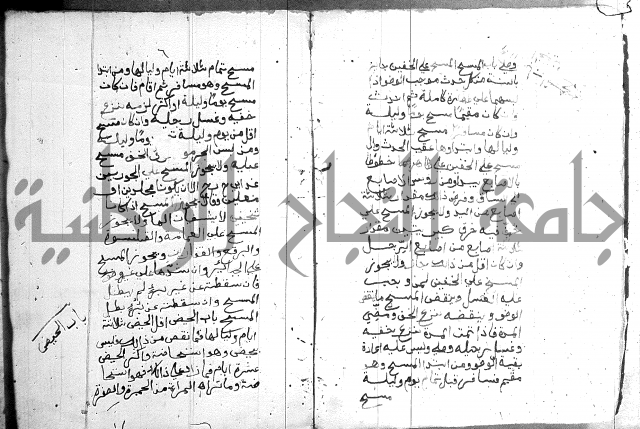 باب المسح على الخفين جائز
بالسنة من كل حدث موجب الوضوء اذا
لبسهما على طهارة كاملة ثم احدث
فان كان مقيما مسح يوما وليلة
وان كان مسافرا مسح ثلاثة ايام
ولياليها وابتداؤها عقيب الحدث وال
مسح على الخفين على ظاهرهما خطوطا
بالاصابع يبدأ من رؤس الاصابع
الى الساق وفرض ذلك مقدار ثلاثة
اصابع من اليد ولا يجوز المسح على
خف فيه خرق كبير يبين منه
ثلاثة اصابع من اصابع الرجل
وان كان اقل من ذلك جاز ولا يجوز
المسح على الخفين لمن وجب
عليه الغسل وينقض المسح ما ينقض
الوضوء وينقضه نزع الخف ومضي
المدة فاذا تمت المدة نزع خفيه
وغسل رجليه وصلى وليس عليه اعادة
بقية الوضوء ومن ابتدأ المسح وهو
مقيم فسافر قبل تمام يوم وليلة
مسح
مسح تمام ثلاثة ايام ولياليها ومن ابتدأ
المسح وهو مسافر ثم اقام فان كان
مسح يوما وليلة او اكثر لزمه نزع
خفيه وغسل رجليه وان كان مسح
اقل من يوم وليلة تمم يوما وليلة
ومن لبس الجرموق فوق الخف مسح
عليه ولا يجوز المسح على الجوربين
عند ابي حنيفة الا ان يكونا مجلدين او
منعلين وقالا يجوز المسح اذا كانا
ثخينين لا يشفان الماء ولا يجوز
المسح على العمامة والقلنسوة
والبرقع والقفازين ويجوز المسح
على الجبائر وان شدها على غير وضوء
فان سقطت عن غير برء لم يبطل
المسح وان سقطت عن برء بطل
المسح باب الحيض اقل الحيض ثلاثة
ايام ولياليها فما نقص من ذلك فليس
بحيض وهو استحاضة واكثر الحيض
عشرة ايام فما زاد على ذلك فهو استحا
ضة وما تراه المرأة من الحمرة والصفرة
باب الحيض
جامعة النجاح الوطنية